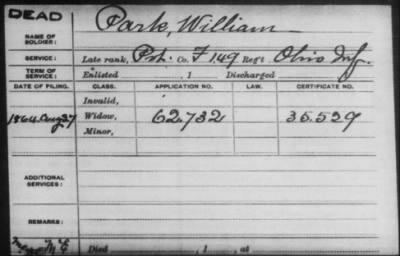 DEAD
NAME OF SOLDIER: Park, William
SERVICE: Late rank, Pvt. Co. F 149 Reg't Ohio Inf.
TERM OF SERVICE: Enlisted , 1 Discharged
DATE OF FILING. CLASS. APPLICATION NO. LAW. CERTIFICATE NO.
Invalid,
1864 Aug 27 Widow, 62.732 35.529
Minor,
ADDITIONAL SERVICES:
REMARKS:
Died , 1 , at